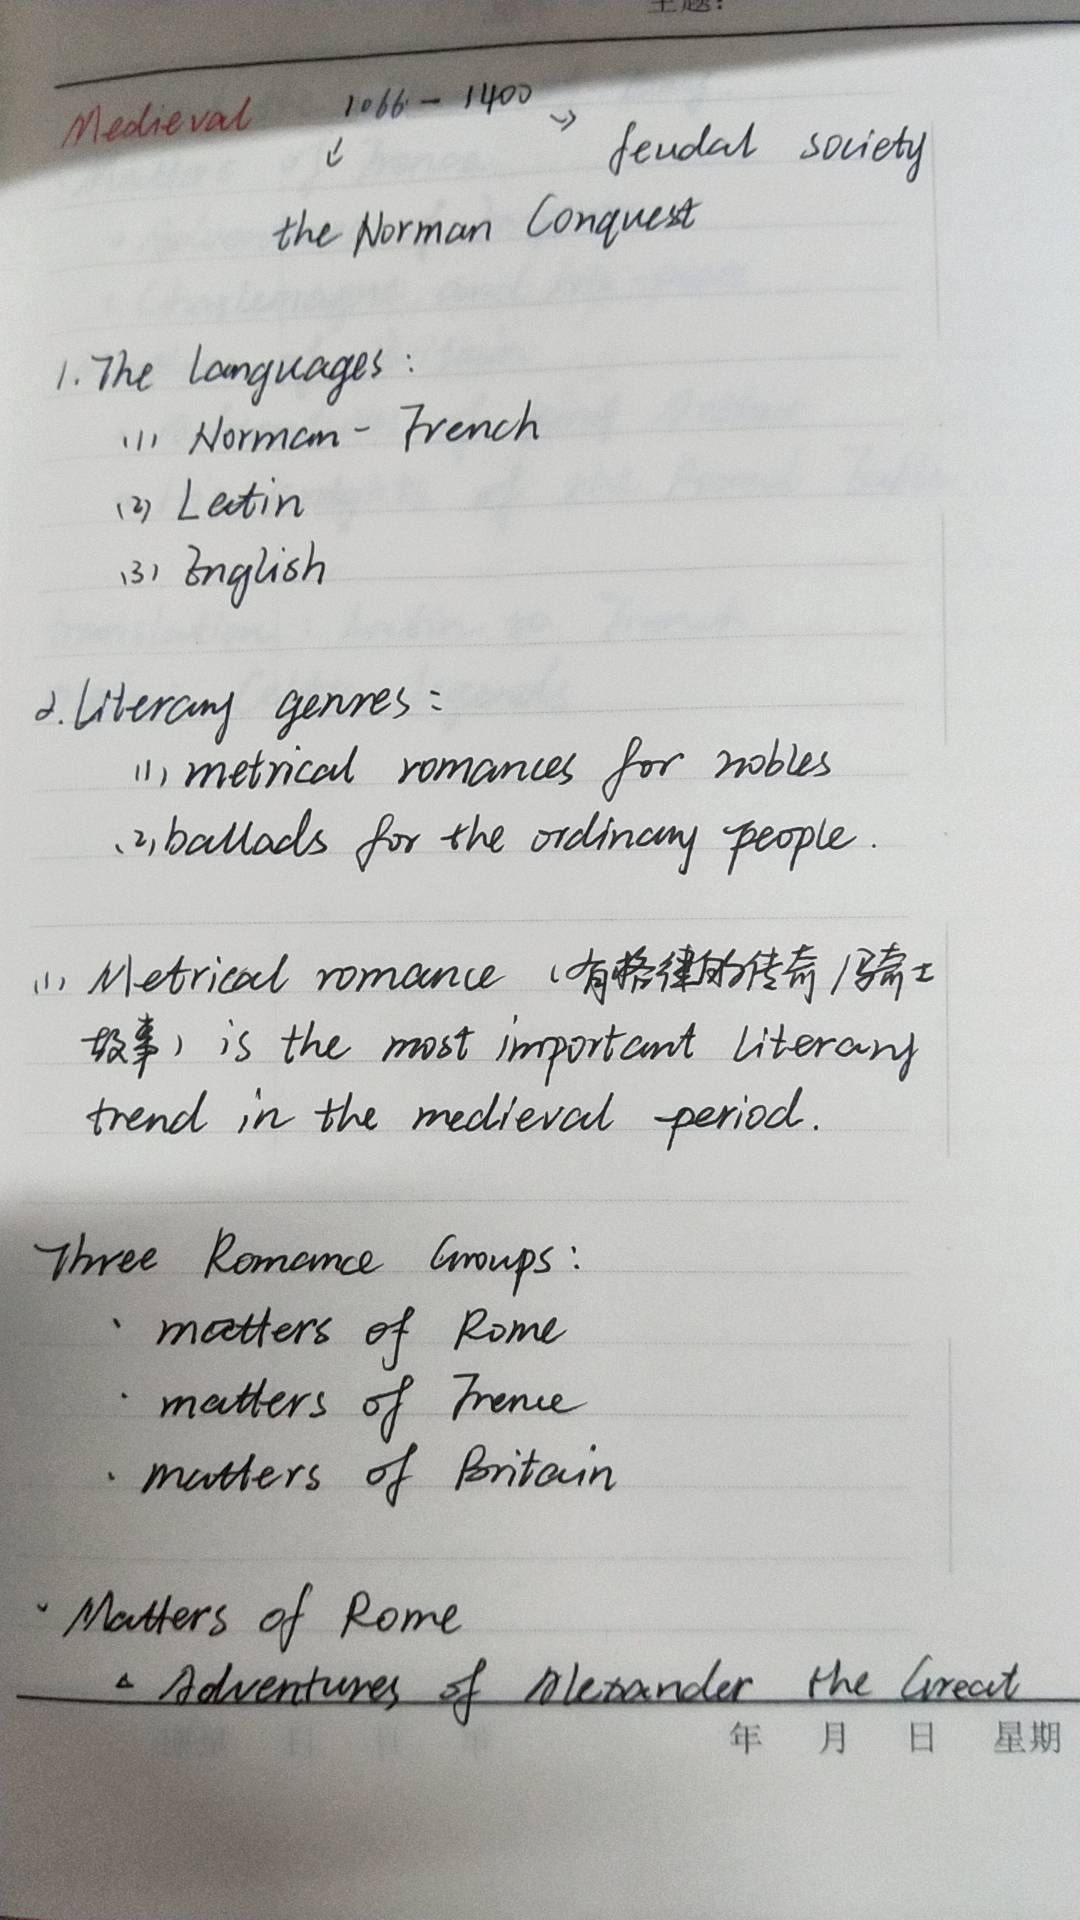 主题:
Medieval 1066 - 1400
feudal society
the Norman Conquest
1. The Languages:
(1) Norman - French
(2) Latin
(3) English
2. Literary genres:
(1) metrical romances for nobles
(2) ballads for the ordinary people.
(1) Metrical romance (有格律的传奇/骑士
故事) is the most important literary
trend in the medieval period.
Three Romance Groups:
· matters of Rome
· matters of France
· matters of Britain
· Matters of Rome
△ Adventures of Alexander the Great
年 月 日 星期